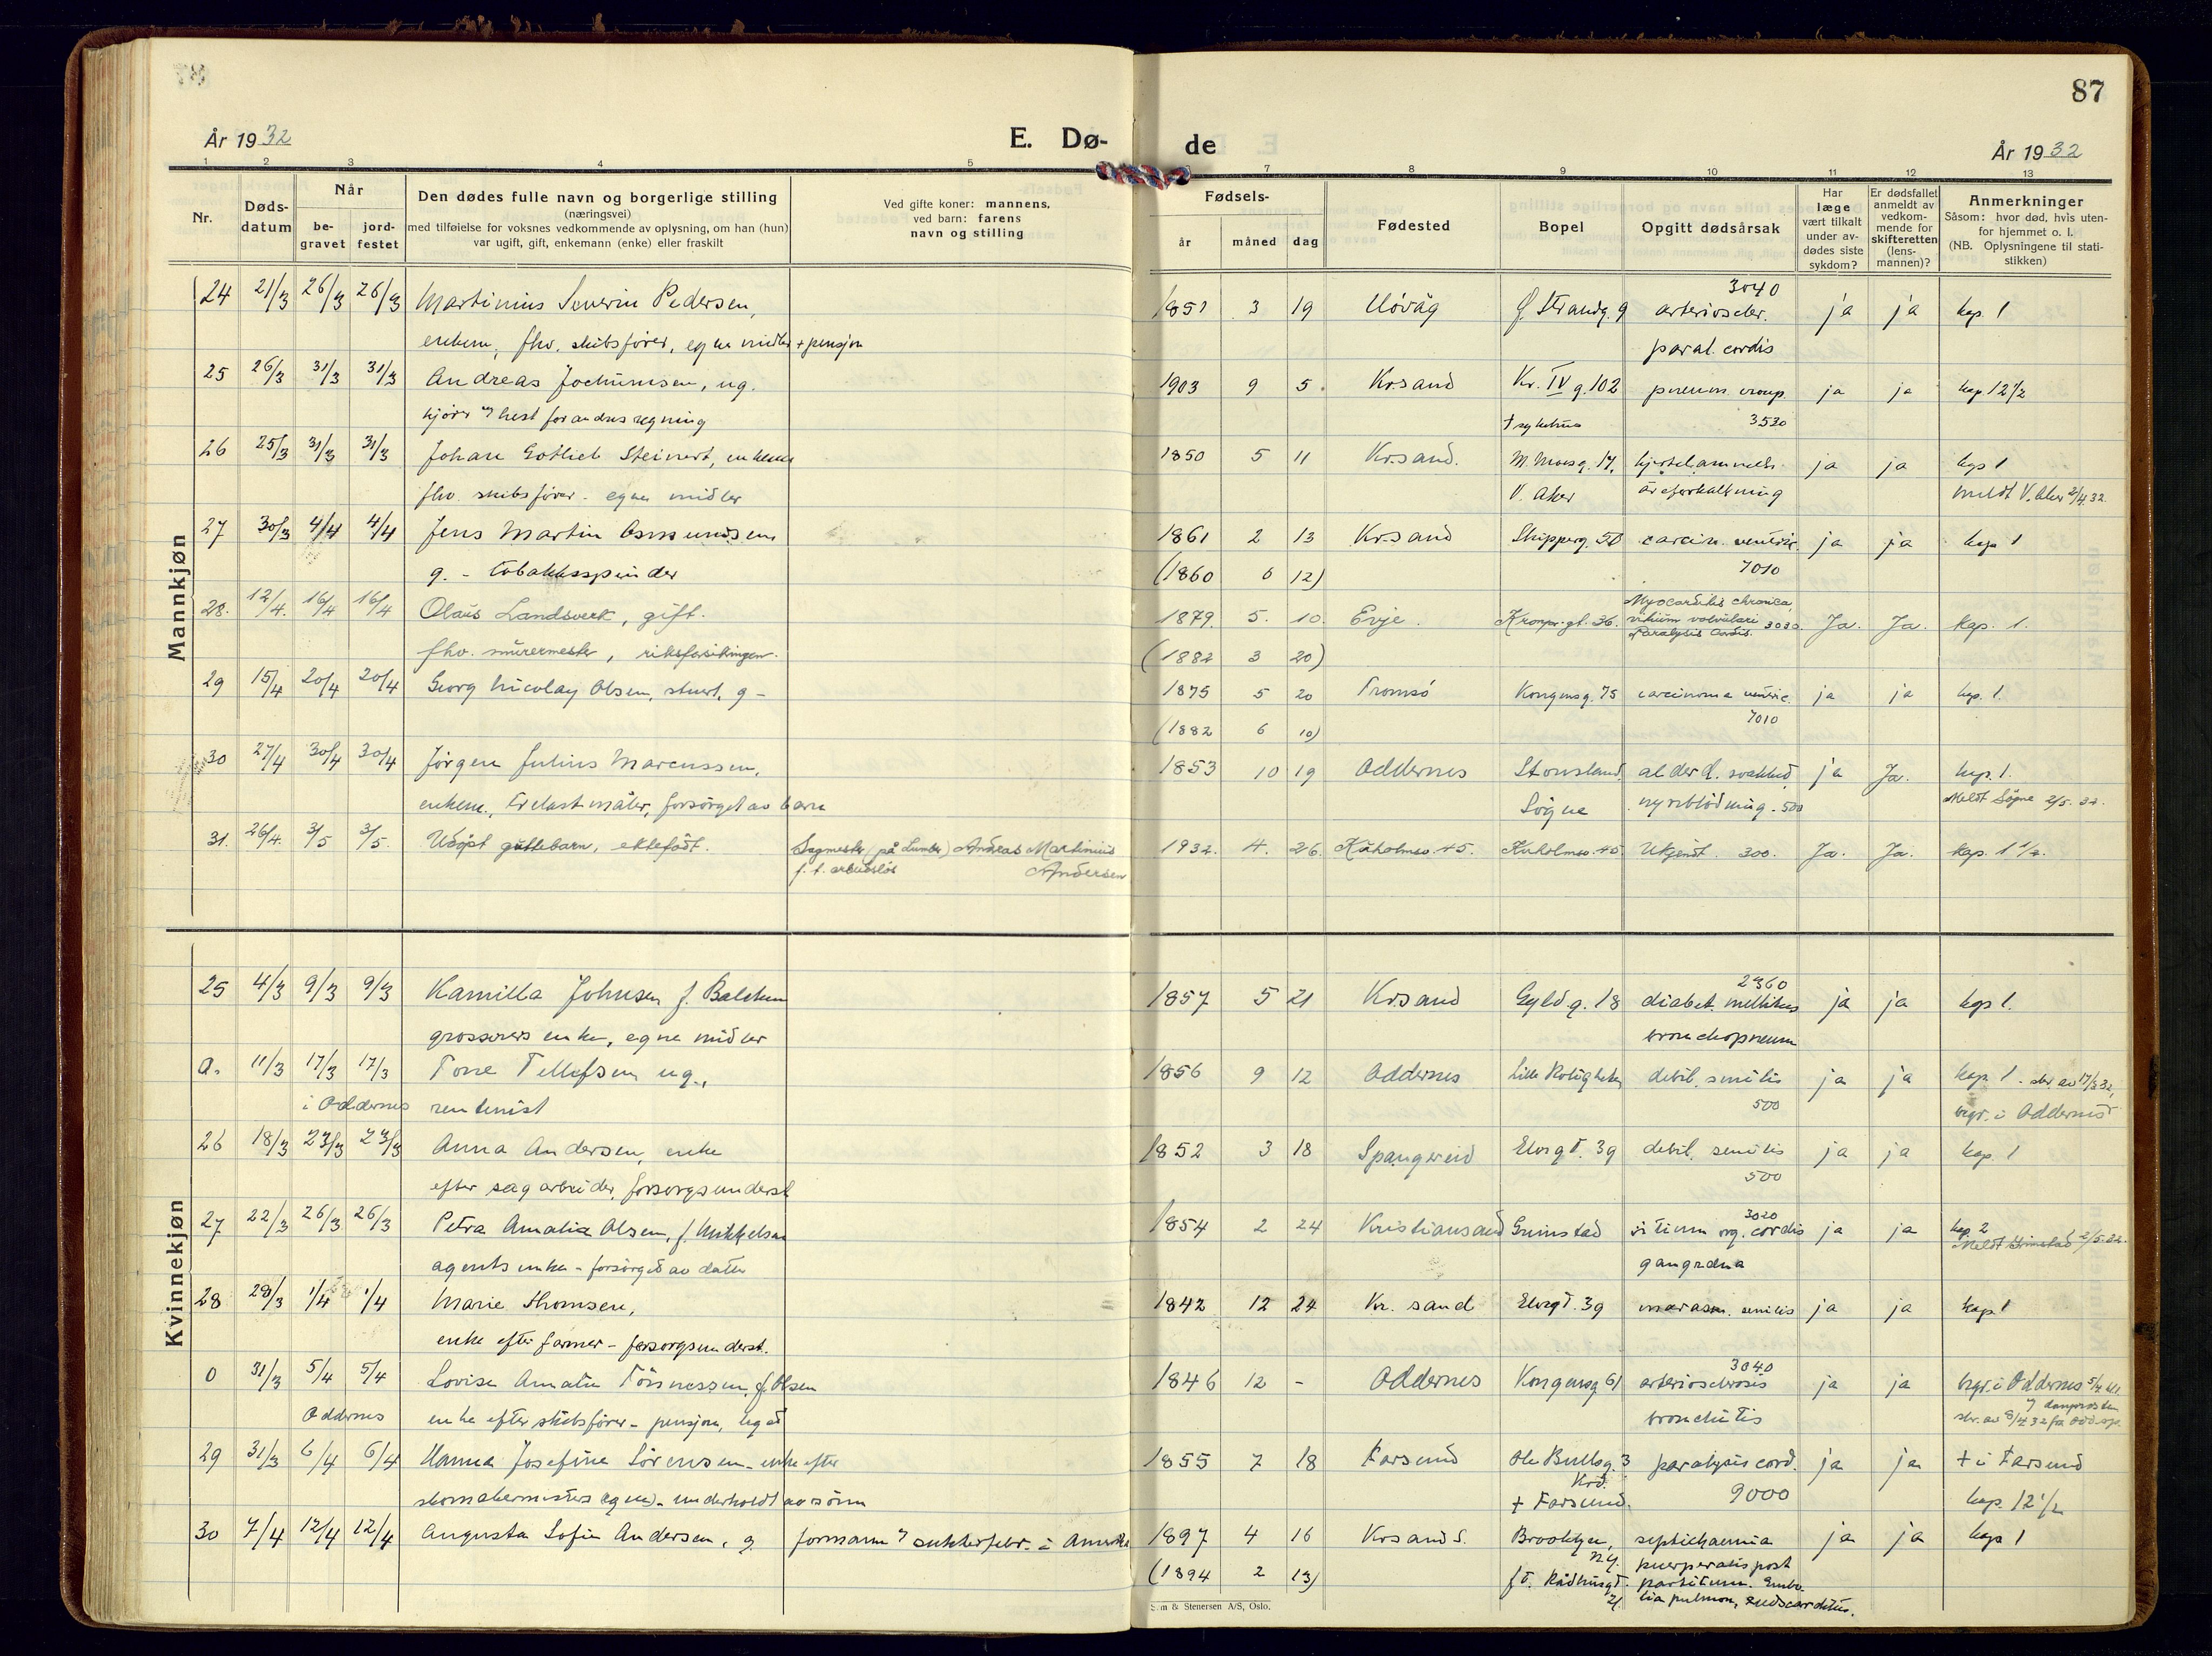 87
År 1932
E. Dø-
de
År 1932
1 2 3 4 5 7 8 9 10 11 12 13
Nr.
Døds-
datum
Når
be-
gravet
jord-
festet
Den dødes fulle navn og borgerlige stilling
(næringsvei)
med tilføielse for voksnes vedkommende av oplysning, om han (hun)
var ugift, gift, enkemann (enke) eller fraskilt
Ved gifte koner: mannens,
ved barn: farens
navn og stilling
Fødsels-
år måned dag
Fødested
Bopel
Opgitt dødsårsak
Har
læge
vært tilkalt
under av-
dødes siste
sykdom?
Er dødsfallet
anmeldt av
vedkom-
mende for
skifteretten
(lens-
mannen)?
Anmerkninger
Såsom: hvor død, hvis uten-
for hjemmet o. l.
(NB. Oplysningene til stati-
stikken)
Mannkjøn
3040
24 21/3 26/3 26/3 Martinius Severin Pedersen, 1851 3 19 Høvåg Ø. Strandg. 9 arterioscler. ja ja kap. 1
enkem, fhv. skibsfører, egne midler + pensjon paral. cordis
25 26/3 31/3 31/3 Andreas Jochumsen, ug. 1903 9 5 Krsand Kr. IV g. 102 pneum. croup. ja ja kap. 12 1/2
kjører hest for andres regning † sykehus 3520
26 25/3 31/3 31/3 Johan Gotlieb Steinert, enkem 1850 5 11 Krsand. M. Moesg. 17, ja ja kap 1
fhv. skibsfører - egne midler V. Aker åreforkalkning meldt V. Aker 2/4 32.
27 30/3 4/4 4/4 Jens Martin Osmundsen 1861 2 13 Krsand Skipperg. 50 carcin. ventric. ja ja kap 1
g. - tobakksspinder (1860 6 12) 7010
Myocarditis chronica,
28. 12/4. 16/4 16/4 Olaus Landsverk, gift. 1879. 5. 10. Evje. Kronpr. gt. 36. vitium valvulari 3030. Ja. Ja. kap. 1.
Paralysis cordis.
fhv. murermester, riksforsikringen. (1882 3 20)
29 15/4 20/4 20/4 Georg Nicolay Olsen, stuert, g - 1875 5 20 Tromsø Kongensg. 75 carcinoma ventric. ja ja kap. 1.
(1882 6 10) 7010
30 27/4 30/4 30/4 Jørgen Julius Marcussen, 1853 10 19 Oddernes alderd. svakhed ja Ja. kap. 1.
enkem., trelastmåler, forsørget av barn Søgne nyreblødning. 500 Meldt Søgne 2/5. 32.
31. 26/4. 3/5 3/5. Udøpt guttebarn, ektefødt. Sagmester (på Lumber) Andreas Martinius 1932. 4. 26. Kuholmsv. 45. Kuholmsv. 45 Ukjendt. 300. Ja. Ja. kap. 1 1/2.
f. t. arbeidsløs Andersen
Kvinnekjøn
2360
25 4/3 9/3 9/3 Kamilla Johnsen f. Balchen 1857 5 21 Krsand Gyld g. 18 diabet. mellitus ja ja kap 1.
grosserers enke, egne midler bronchopneum
0. 11/3 17/3 17/3 Tone Tellefsen ug., 1856 9 12 Oddernes Lille Roligheten debil. senilis ja ja kap. 1 - skr. av 17/3 32,
i Oddernes rentenist 500 begr. i Oddernes
26 18/3 23/3 23/3 Anna Andersen, enke 1852 3 18 Spangereid Elvegt. 39 debil. senilis ja ja kap. 1
efter sagarbeider, forsorgsunderst 500
3020
27 22/3 26/3 26/3 Petra Amalia Olsen, f. Mikkelsen 1854 2 24 Kristiansand Grimstad vitium org. cordis ja ja kap. 2
Meldt Grimstad 2/5. 32.
agents enke - forsørget av datter gangræna
28 28/3 1/4 1/4 Marie Thomsen, 1842 12 24 Kr. sand Elvegt. 39 marasm. senilis ja ja kap 1
enke efter farmer - forsorgsunderst.
3040
0 31/3 5/4 5/4 Lovise Amalie Tönnessen, f. Olsen 1846 12 - Oddernes Kongensg 61 arteriosclerosis ja ja begr. i Oddernes 5/4
Oddernes enke efter skibsfører - pensjon, legat bronchitis
29 31/3 6/4 6/4 Hanna Josefine Sörensen - enke efter 1855 7 18 Farsund Ole Bullsg. 3 paralysis cord. ja ja † i Farsund
Krs.
skomakermesters - underholdt av sönn † Farsund. 9000 kap. 12 1/2
30 7/4 12/4 12/4 Augusta Sofie Andersen, g. formann sukkerfabr. i Amerika 1897 4 16 Krsand S. Brooklyn, septichaemia ja ja kap 1
N.Y. puerperalis post
(1894 2 13) f. t. Rådhusgt. partutum. Embo-
21. lia pulmon, endocarditis.
S.m & Stenersen A/S, Oslo.